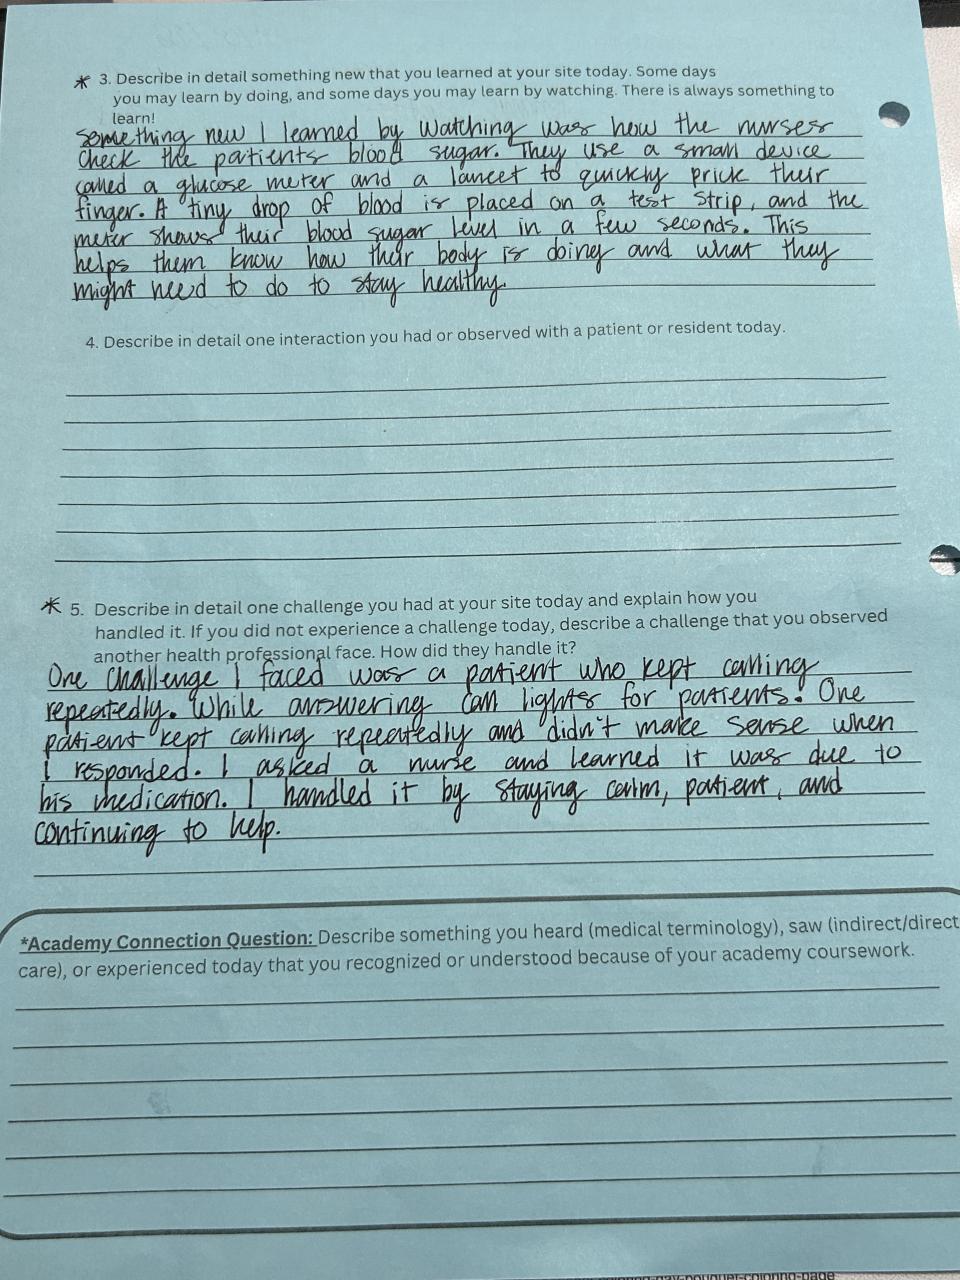 * 3. Describe in detail something new that you learned at your site today. Some days
you may learn by doing, and some days you may learn by watching. There is always something to
learn!
Something new I learned by watching was how the nurses
check the patients blood sugar. They use a small device
called a glucose meter and a lancet to quickly prick their
finger. A tiny drop of blood is placed on a test strip, and the
meter shows their blood sugar level in a few seconds. This
helps them know how their body is doing and what they
might need to do to stay healthy.
4. Describe in detail one interaction you had or observed with a patient or resident today.
* 5. Describe in detail one challenge you had at your site today and explain how you
handled it. If you did not experience a challenge today, describe a challenge that you observed
another health professional face. How did they handle it?
One challenge I faced was a patient who kept calling
repeatedly. While answering call lights for patients. One
patient kept calling repeatedly and didn't make sense when
I responded. I asked a nurse and learned it was due to
his medication. I handled it by staying calm, patient, and
continuing to help.
*Academy Connection Question: Describe something you heard (medical terminology), saw (indirect/direct
care), or experienced today that you recognized or understood because of your academy coursework.